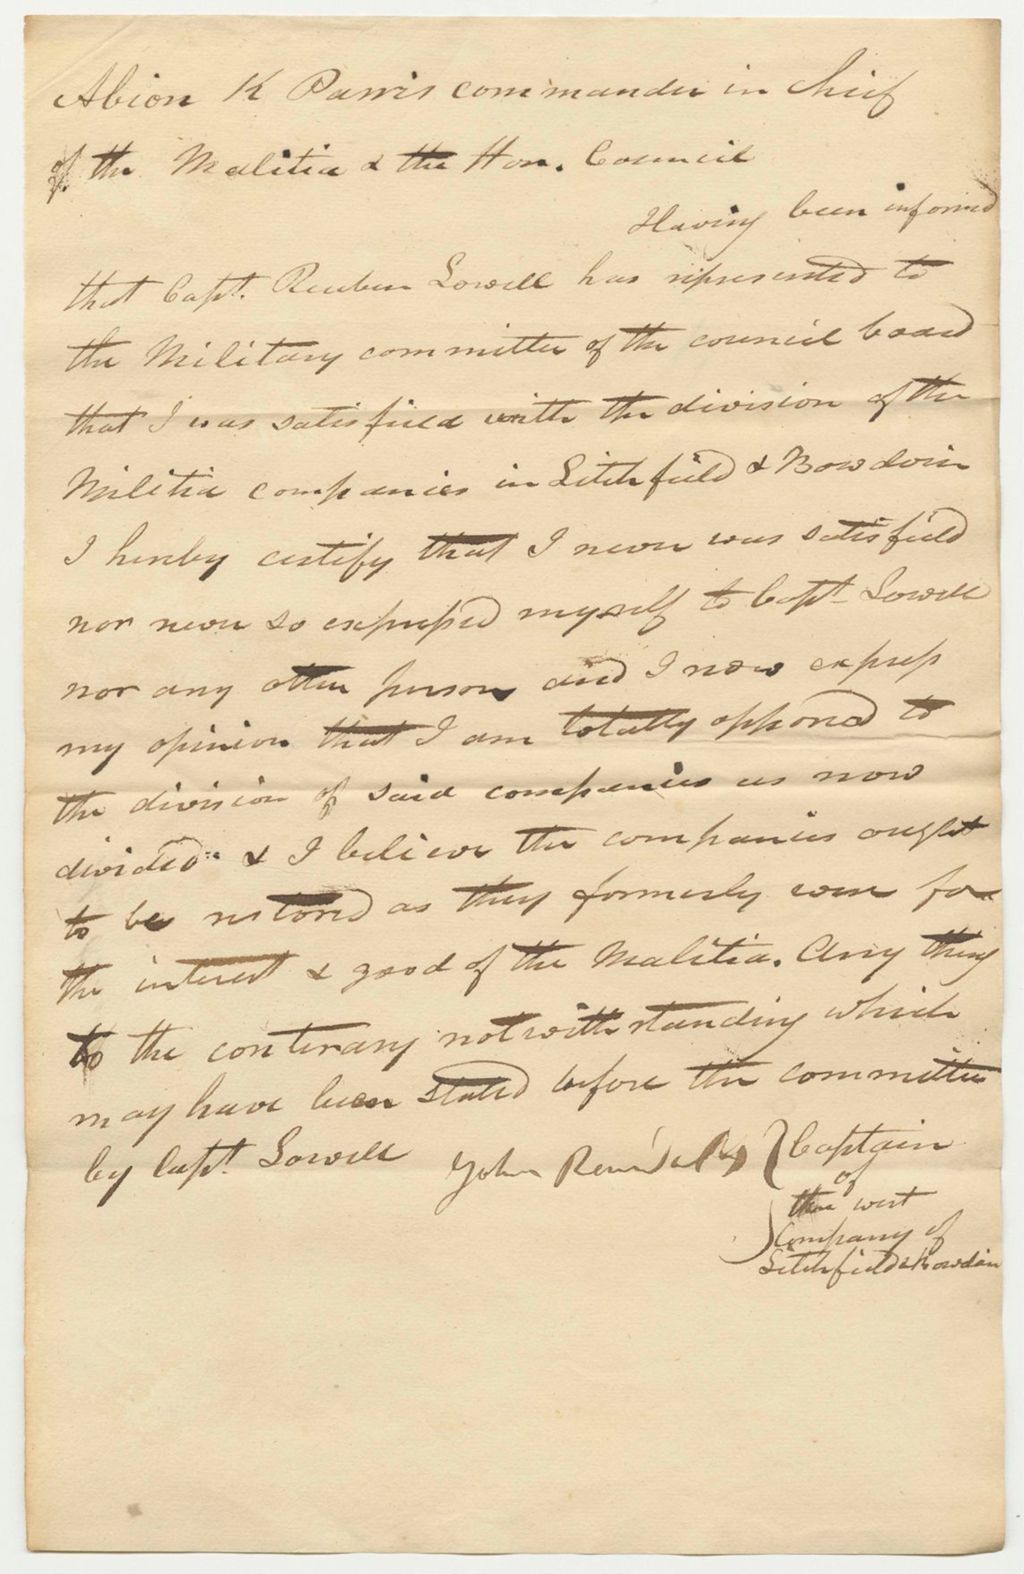 Albion K Parris commander in Chief
of the Malitia & the Hon. Council
Having been informed
that Capt. Reuben Lowell has represented to
the Military committee of the council board
that I was satisfied with the division of the
Militia companies in Litchfield & Bowdoin
I hereby certify that I never was satisfield
nor never so expressed myself to Capt Lowell
nor any other person and I now express
my opinion that I am totally opposed to
the division of said companies as now
divided & I believe the companies ought
to be restored as they formerly were for
the interest & good of the Malitia. Any thing
to the conterary notwithstanding which
may have been stated before the committee
by Capt. Lowell John Captain
of
the west
Company of
Litchfield & Bowdoin